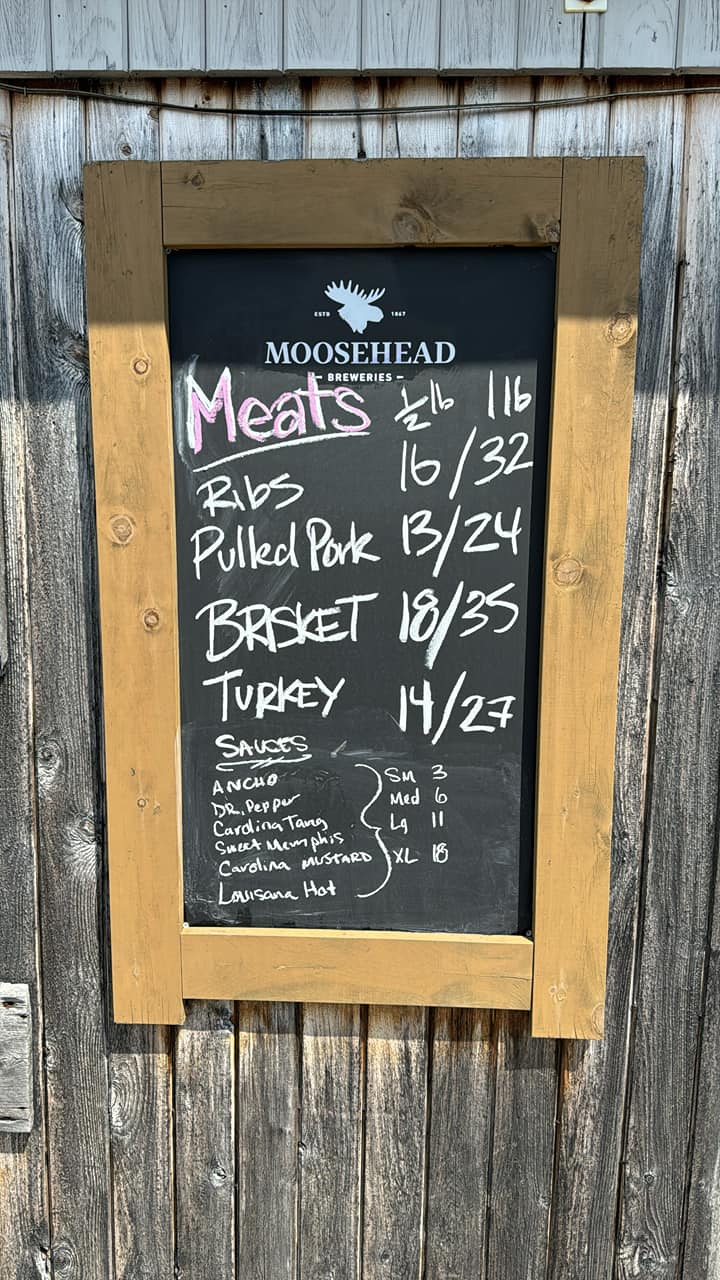 ESTD 1867
MOOSEHEAD
– BREWERIES –
Meats ½ lb 1 lb
Ribs 16/32
Pulled Pork 13/24
BRISKET 18/35
TURKEY 14/27
SAUCES
ANCHO SM 3
DR. Pepper Med 6
Carolina Tang Lg 11
Sweet Memphis
Carolina MUSTARD XL 18
Louisana Hot